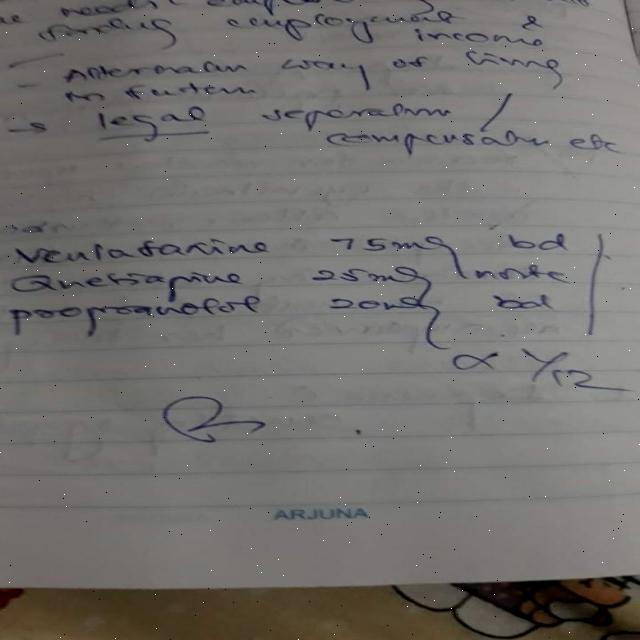 employment &
income
Alternative way of living
in future
→ legal separation /
compensation etc
Venlafaxine 75mg bd
Quetiapine 25mg nocte
propranolol 20mg bd
x 1/12
ARJUNA